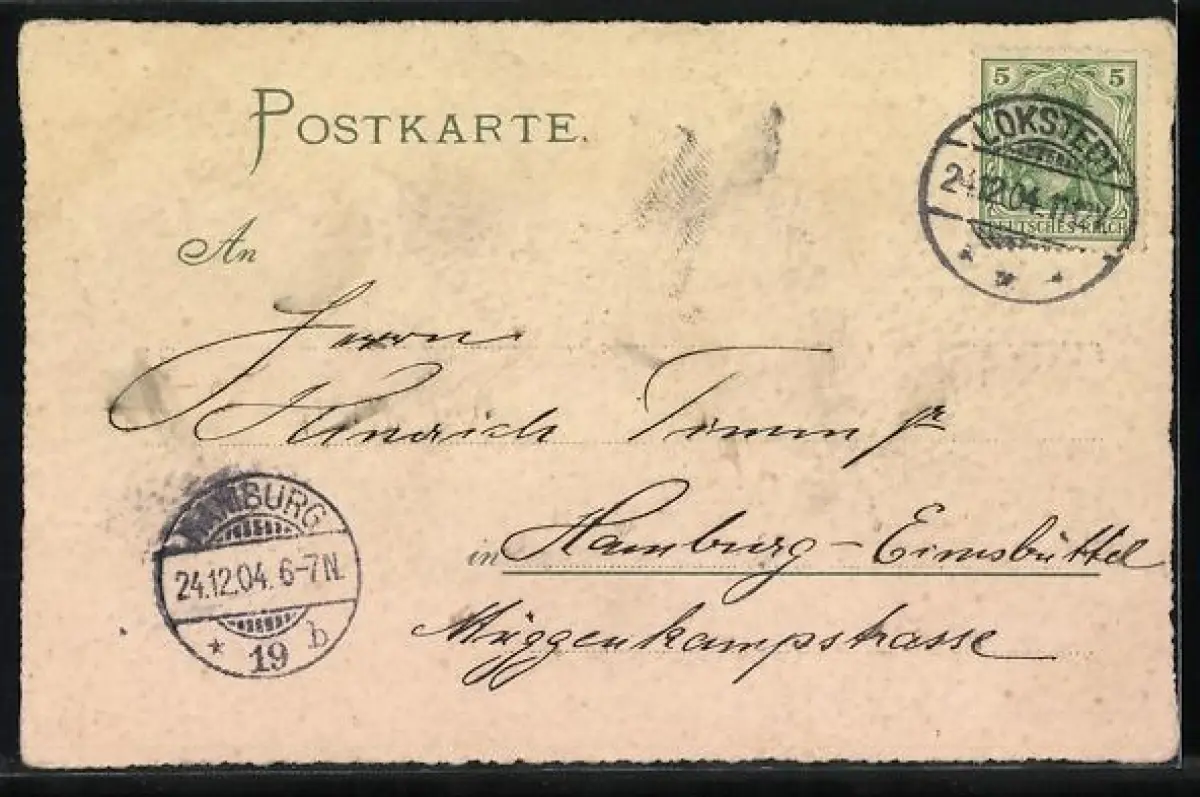 POSTKARTE.
5 5
LOKSTEDT
24.12.04.
DEUTSCHES REICH
An
Herrn
Hinrich Timm jr
HAMBURG
24.12.04. 6-7N.
* 19 b
in Hamburg-Eimsbüttel
Müggenkampstrasse